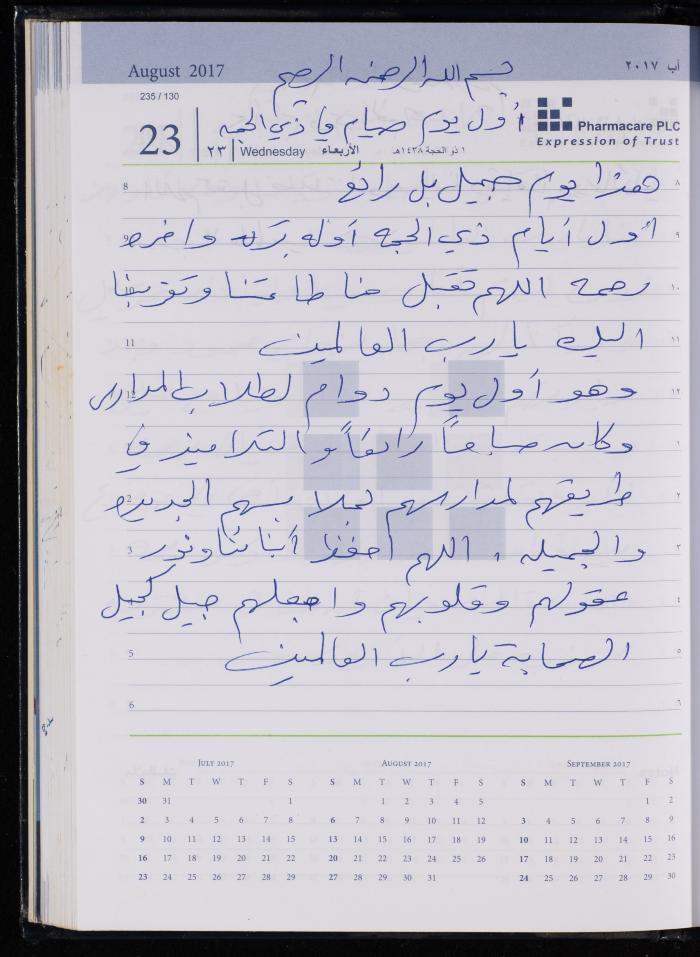 August 2017 بسم الله الرحمن الرحيم آب ٢٠١٧
235 / 130
أول يوم صيام في ذي الحجه
Pharmacare PLC
Expression of Trust
23 ٢٣ Wednesday الأربعاء ١ ذو الحجة ١٤٣٨هـ
8 هذا يوم جميل بل رائع ٨
9 أول أيام ذي الحجه أوله بركه واخره ٩
10 رحمه اللهم تقبل منا طاعتنا وتقربنا ١٠
11 اليك يا رب العالمين ١١
12 وهو أول يوم دوام لطلاب المدارس ١٢
1 وكان صباحاً رائعاً والتلاميذ في ١
2 طريقهم لمدارسهم بملابسهم الجديده ٢
3 والجميله ، اللهم احفظ أبنائنا ونور ٣
عقولهم وقلوبهم واجعلهم جيل كجيل ٤
5 الصحابة يا رب العالمين ٥
6 ٦
JULY 2017
S M T W T F S
30 31 1
2 3 4 5 6 7 8
9 10 11 12 13 14 15
16 17 18 19 20 21 22
23 24 25 26 27 28 29
AUGUST 2017
S M T W T F S
1 2 3 4 5
6 7 8 9 10 11 12
13 14 15 16 17 18 19
20 21 22 23 24 25 26
27 28 29 30 31
SEPTEMBER 2017
S M T W T F S
1 2
3 4 5 6 7 8 9
10 11 12 13 14 15 16
17 18 19 20 21 22 23
24 25 26 27 28 29 30